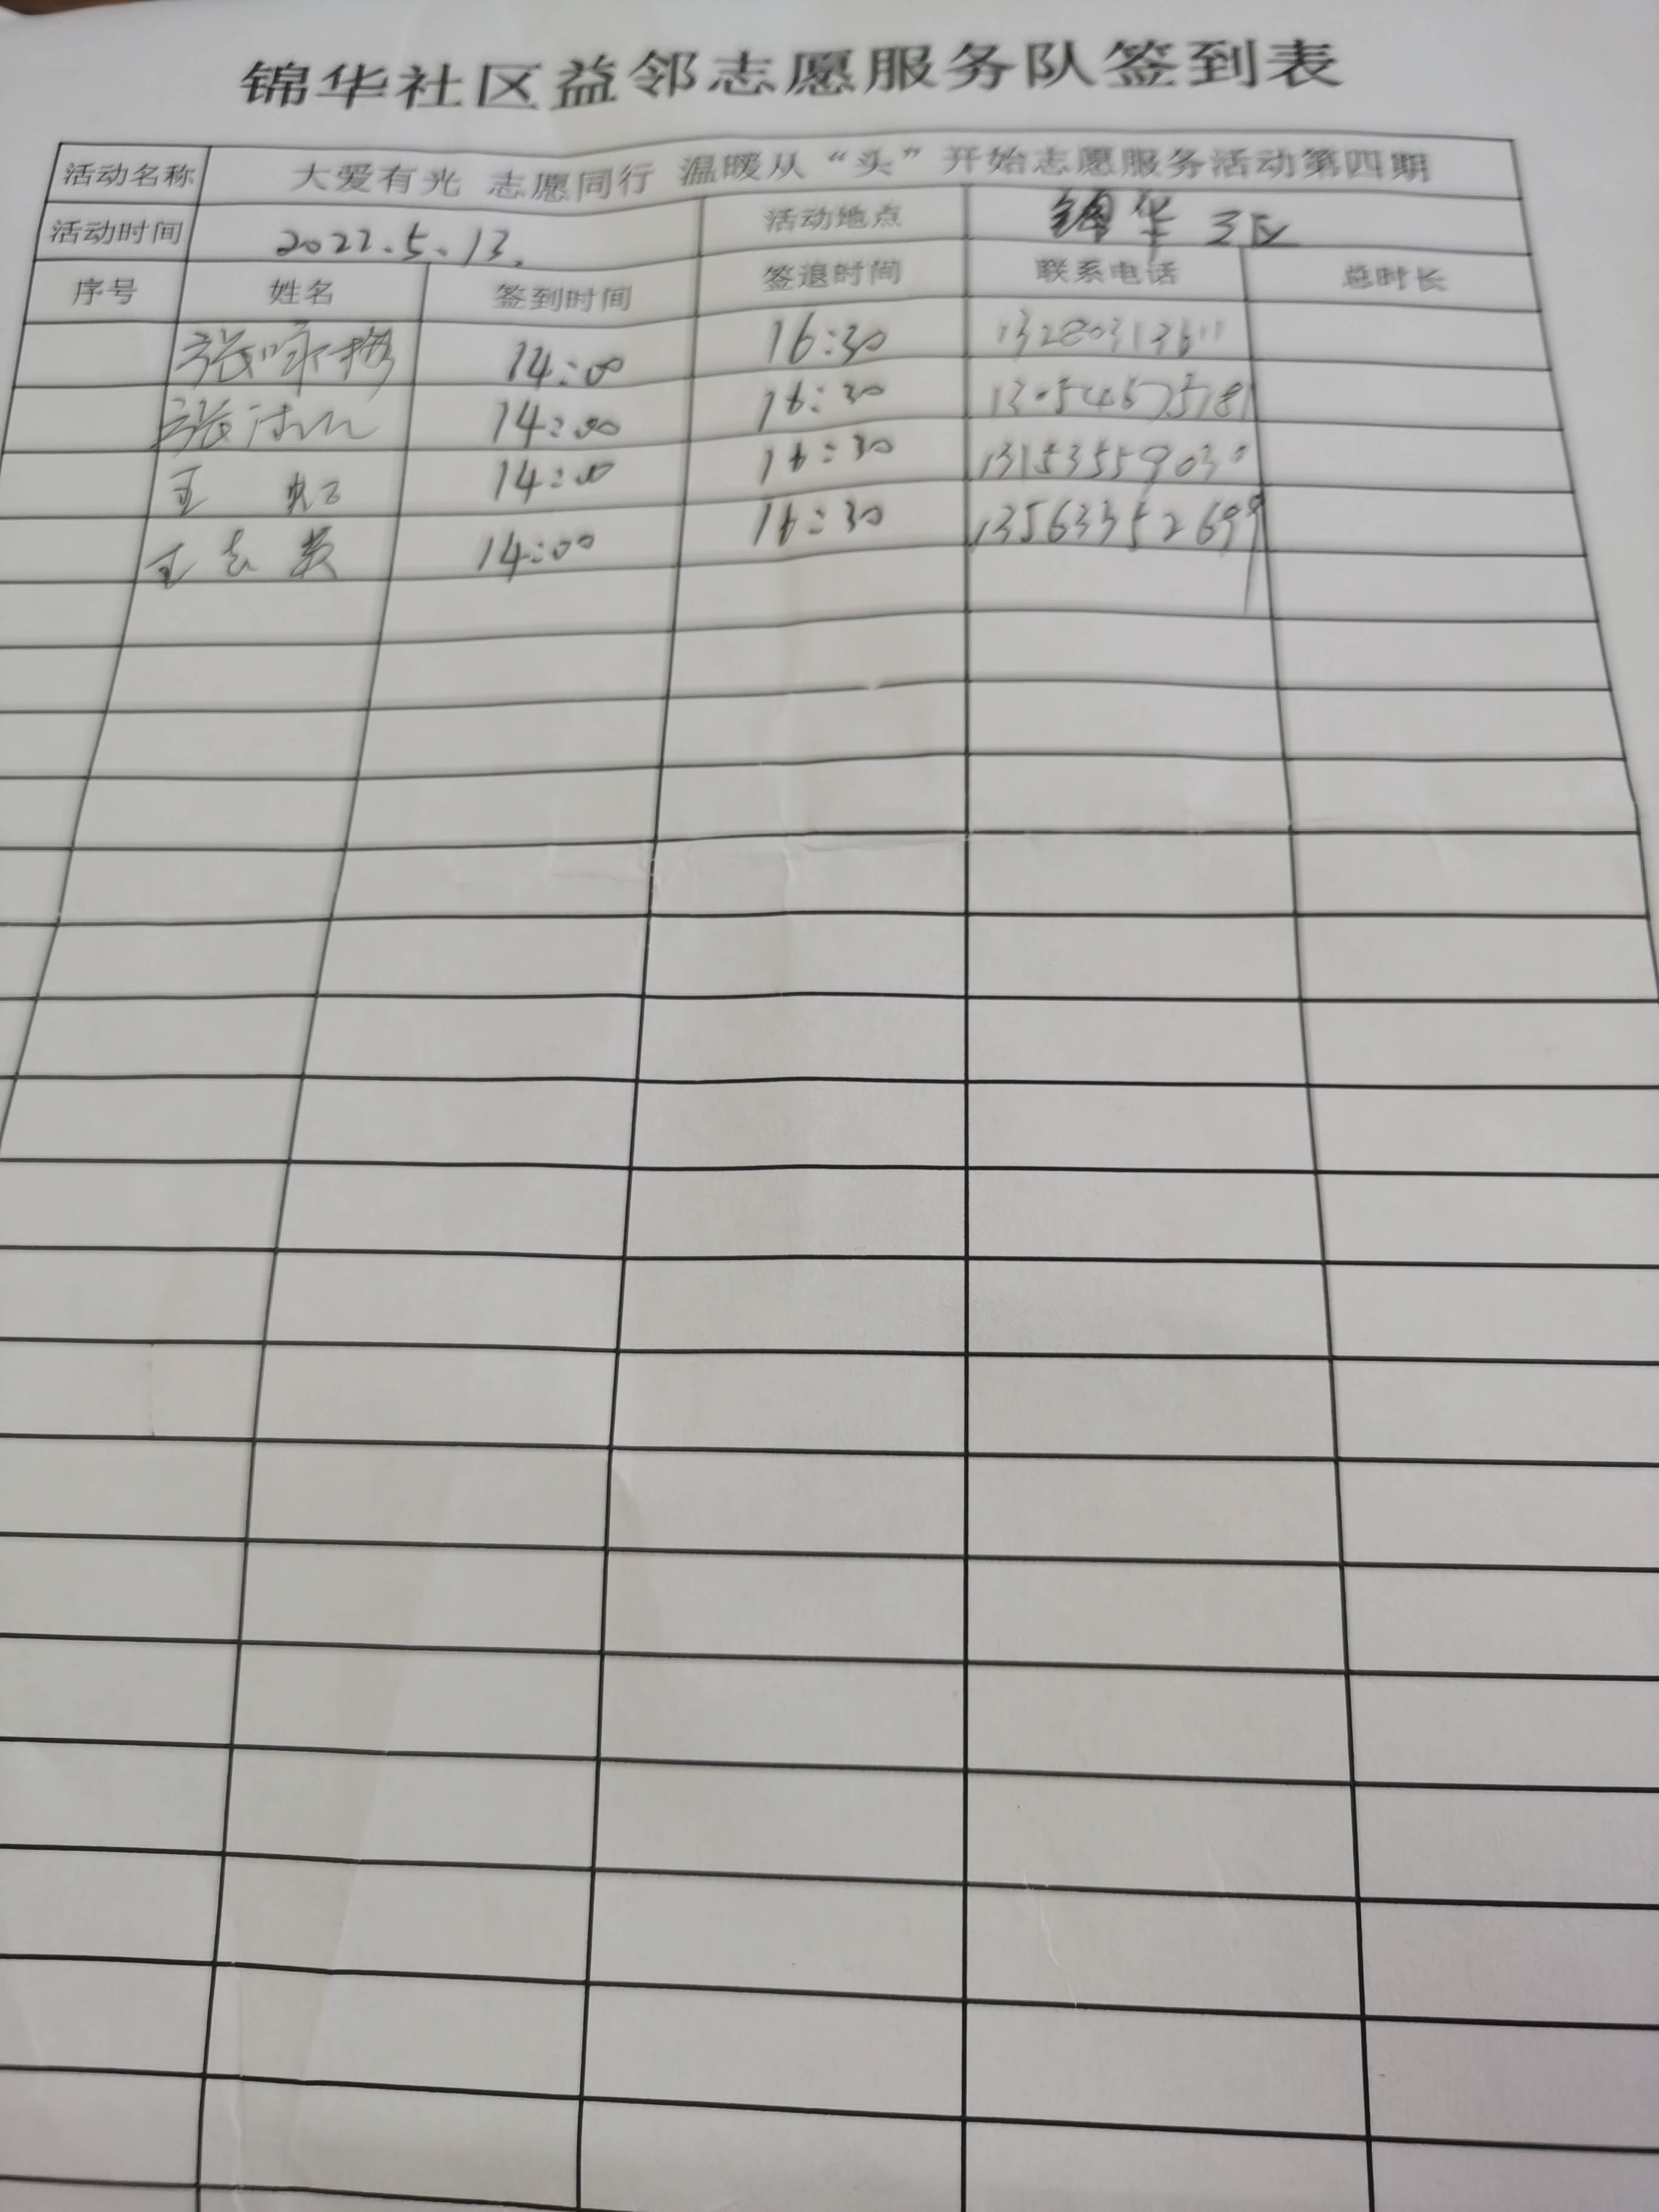 锦华社区益邻志愿服务队签到表
活动名称 大爱有光 志愿同行 温暖从“头”开始志愿服务活动第四期
活动时间 2022.5.13. 活动地点 锦华三区
序号 姓名 签到时间 签退时间 联系电话 总时长
张咏梅 14:00 16:30 13280313611
张 14:00 16:30
王 14:00 16:30 13153559030
王志英 14:00 16:30 13563352699